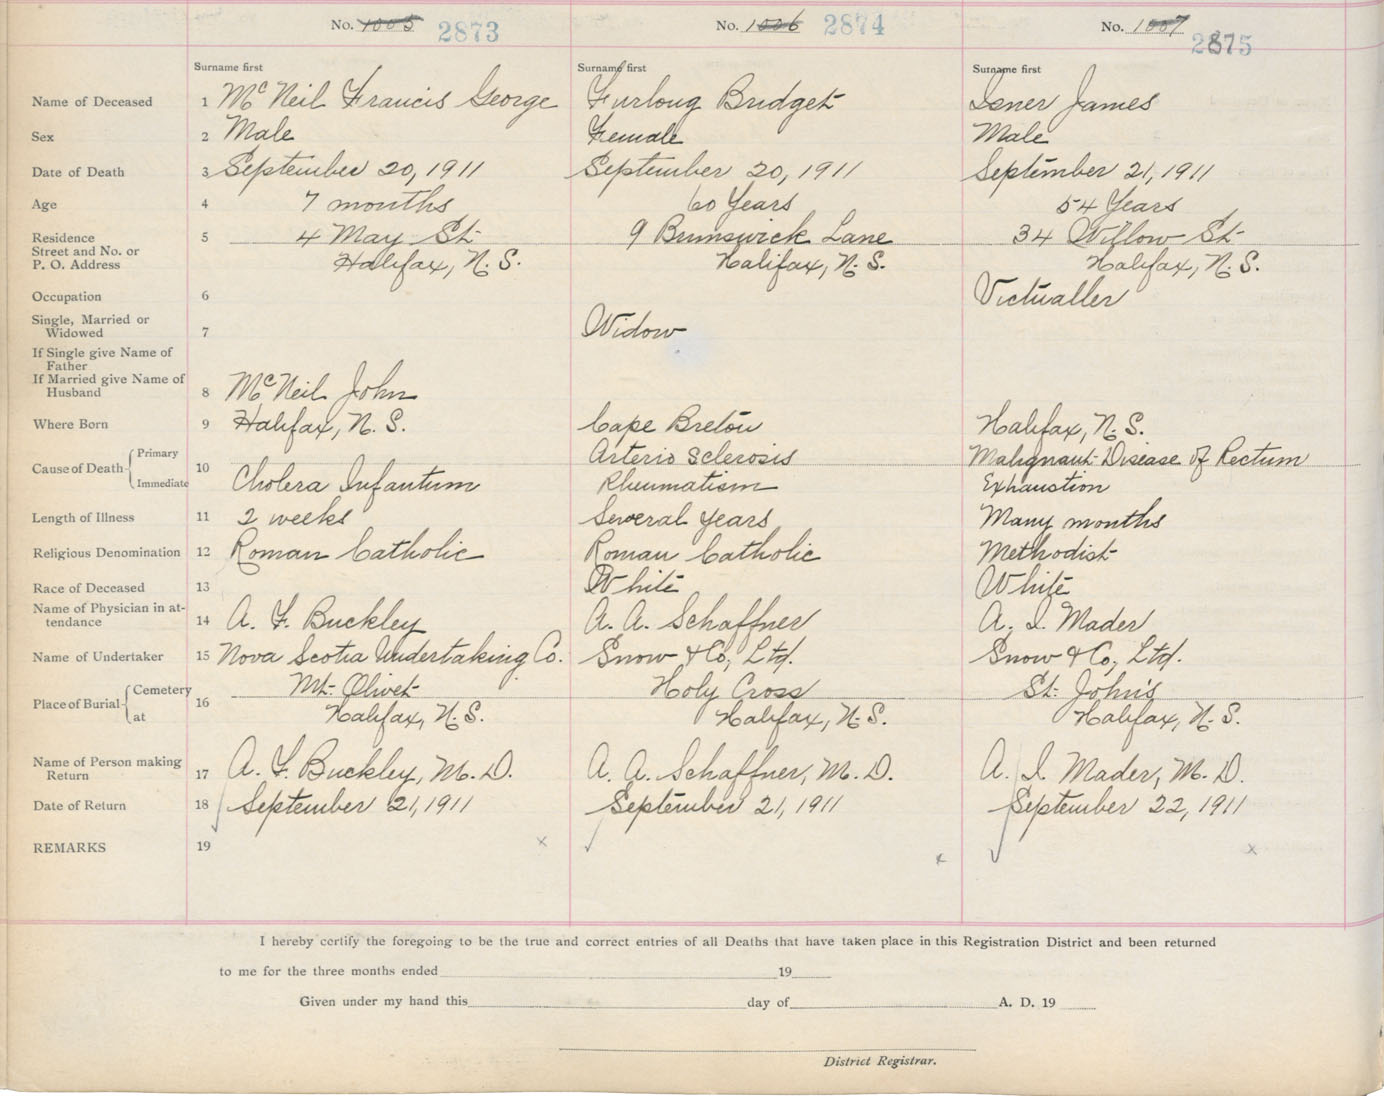 No. 1005 2873 No. 1006 2874 No. 1007 2875
Surname first Surname first Surname first
Name of Deceased 1 McNeil Francis George Furlong Bridget Isner James
Sex 2 Male Female Male
Date of Death 3 September 20, 1911 September 20, 1911 September 21, 1911
Age 4 7 months 60 Years 54 Years
Residence 5 4 May St 9 Brunswick Lane 34 Willow St
Street and No. or
P. O. Address Halifax, N.S. Halifax, N.S. Halifax, N.S.
Occupation 6 Victualler
Single, Married or
Widowed 7 Widow
If Single give Name of
Father
If Married give Name of
Husband 8 McNeil John
Where Born 9 Halifax, N.S. Cape Breton Halifax, N.S.
Cause of Death Primary 10 Arterio Sclerosis Malignant Disease of Rectum
Immediate Cholera Infantum Rheumatism Exhaustion
Length of Illness 11 2 weeks Several years Many months
Religious Denomination 12 Roman Catholic Roman Catholic Methodist
Race of Deceased 13 White White
Name of Physician in at-
tendance 14 A. F. Buckley A. A. Schaffner A. I. Mader
Name of Undertaker 15 Nova Scotia Undertaking Co. Snow & Co, Ltd. Snow & Co, Ltd.
Place of Burial Cemetery 16 Mt. Olivet Holy Cross St. John's
at Halifax, N.S. Halifax, N.S. Halifax, N.S.
Name of Person making
Return 17 A. F. Buckley, M.D. A. A. Schaffner, M.D. A. I. Mader, M.D.
Date of Return 18 September 21, 1911 September 21, 1911 September 22, 1911
REMARKS 19 x x x
I hereby certify the foregoing to be the true and correct entries of all Deaths that have taken place in this Registration District and been returned
to me for the three months ended 19
Given under my hand this day of A. D. 19
District Registrar.